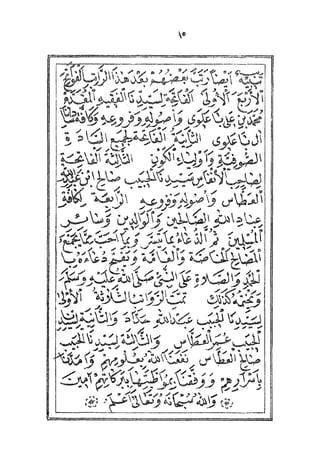 ١٥
تنبيه أيضا رتب بعضهم بعد هذا الراتب الفواتح
الأربع الأولى الفاتحة لسيدنا الفقيه المقدم
محمد بن علي باعلوي وأصوله وفروعه وكافة ساداتنا
آل باعلوي الثانية الفاتحة لجميع السادة
الصوفية وأولياء الكون الثالثة الفاتحة
لصاحب الأنفاس سيدنا الحبيب صالح ابن عبدالله
العطاس وأصوله وفروعه الرابعة لكافة
عباد الله الصالحين والوالدين وسائر
المسلمين ثم الدعاء بما تيسر وبما أحب مما يجمع
المصالح الخاصة والعامة ويفتح دعاءه با
لحمد والصلاة على النبي صلى الله عليه وسلم
ويختم كذلك تمت الرواتب الثلاثة الأول
لسيدنا الحبيب عبدالله حداد والثانية لسيدنا
الحبيب عمر العطاس والثالثة لسيدنا الحبيب
صالح العطاس نفعنا الله بعلومهم وأمدنا
بأسرارهم ووفقنا بمواظبتها ببركاتهم آمين
والله سبحانه وتعالى أعلم